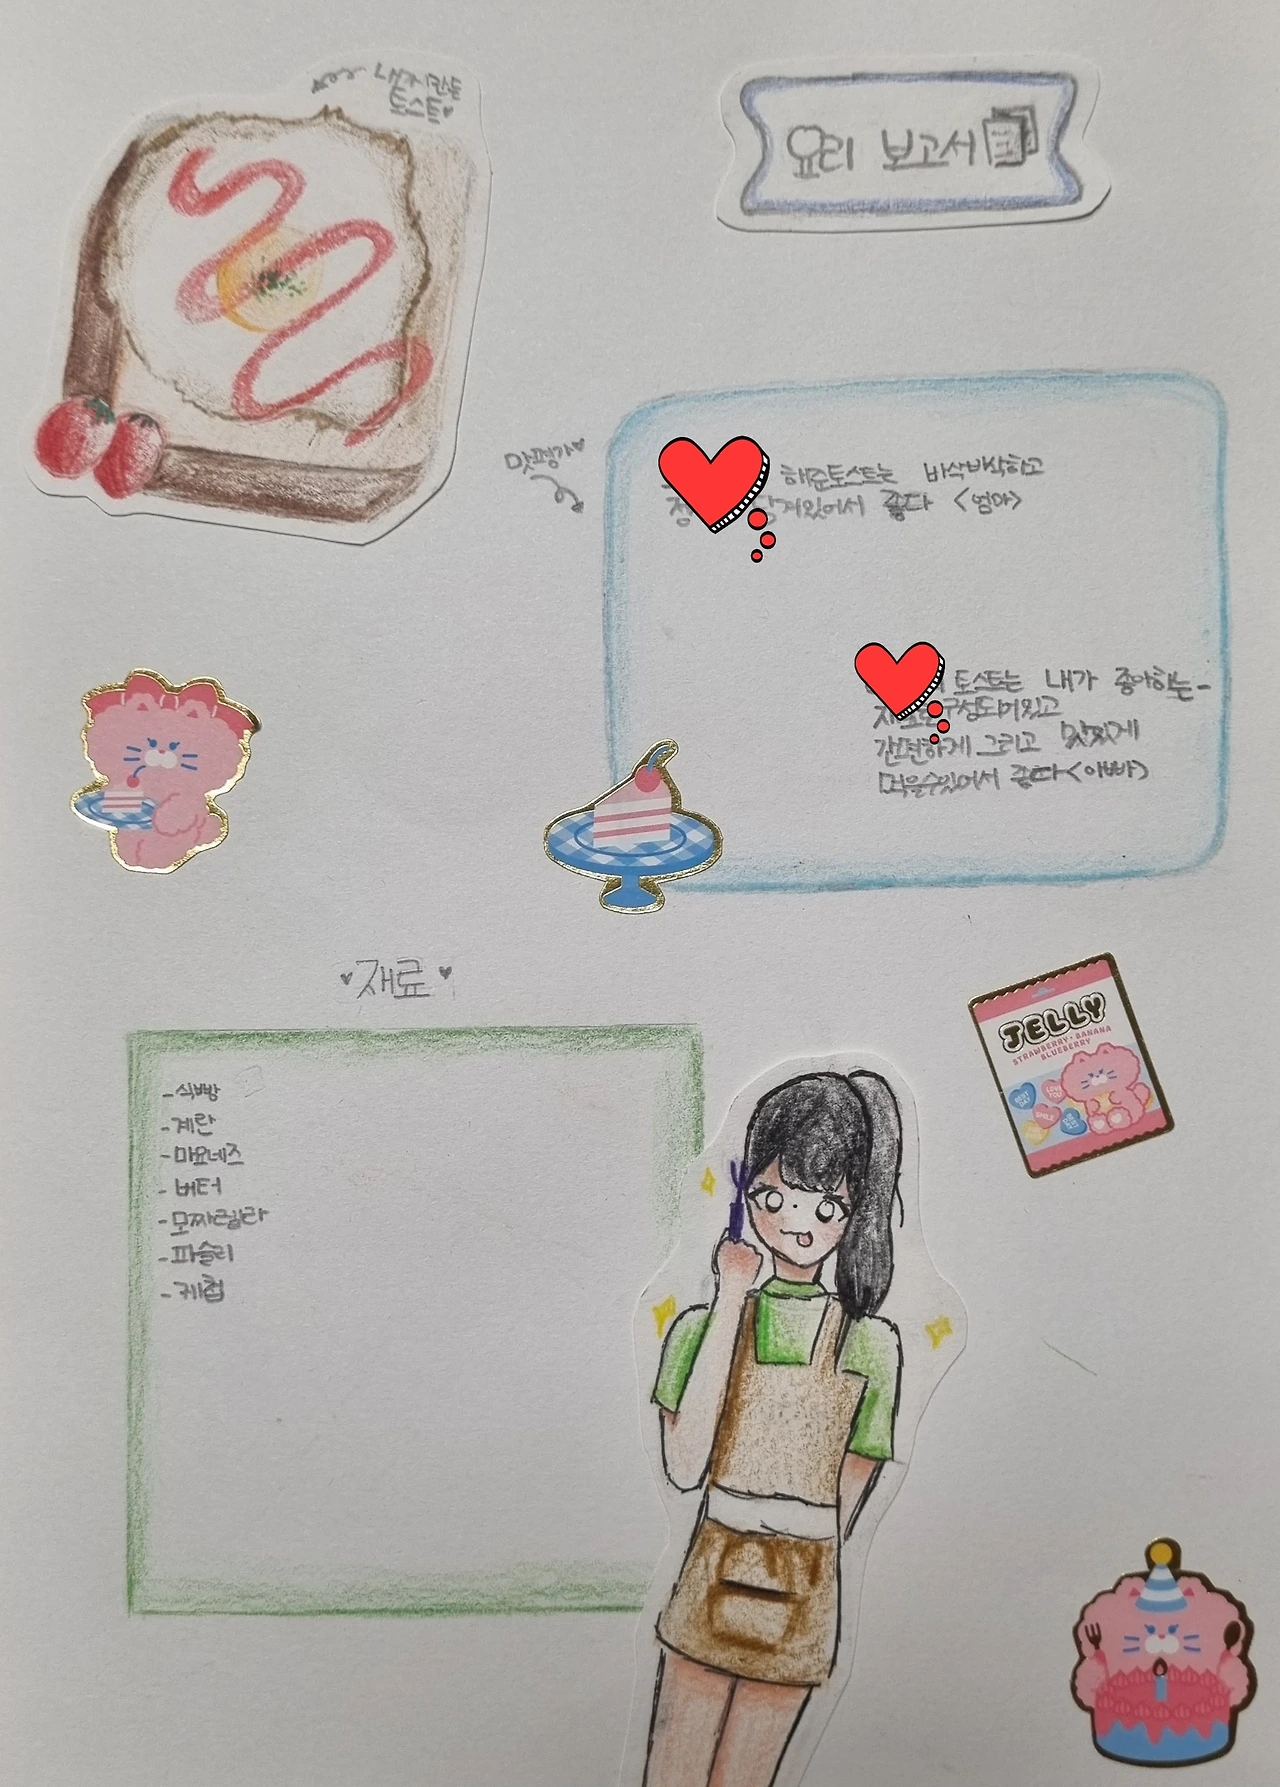 내가 만든
토스트♥
요리 보고서
맛평가♥
해준토스트는 바삭바삭하고
정 담겨있어서 좋다 <엄마>
토스트는 내가 좋아하는-
구성되어있고
간편하게 그리고 맛있게
먹을수있어서 좋다<아빠>
♥재료♥
-식빵
-계란
-마요네즈
-버터
-모짜렐라
-파슬리
-케찹
JELLY
STRAWBERRY·BANANA
BLUEBERRY
BEST DAY
LOVE YOU
SMILE
BEST DAY